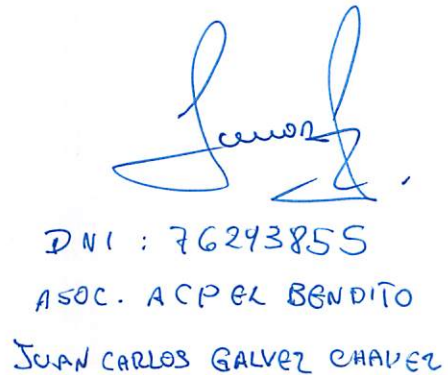 DNI : 76243855
ASOC. ACP EL BENDITO
JUAN CARLOS GALVEZ CHAVEZ